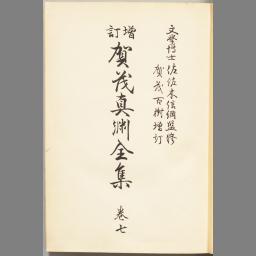 文學博士佐佐木信綱監修
賀茂百樹增訂
增訂
賀茂真淵全集
卷七